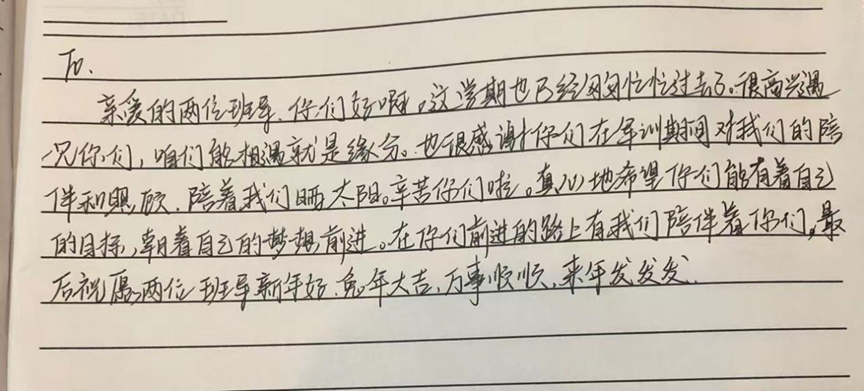 To.
亲爱的两位班导,你们好啊。这学期也已经匆匆忙忙过去了。很高兴遇
见你们,咱们能相遇就是缘分。也很感谢你们在军训期间对我们的陪
伴和照顾,陪着我们晒太阳。辛苦你们啦。真心地希望你们能有着自己
的目标,朝着自己的梦想前进。在你们前进的路上有我们陪伴着你们,最
后祝愿两位班导新年好,兔年大吉,万事顺顺,来年发发发.